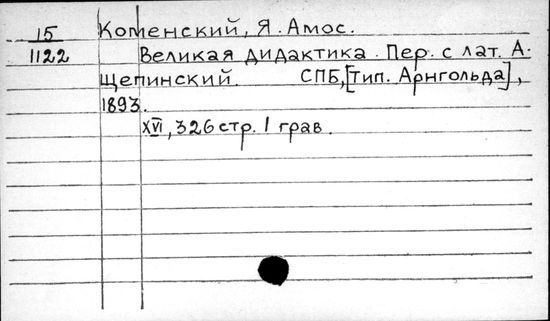 15 Коменский, Я. Амос.
1122 Великая дидактика. Пер. с лат. А.
Щепинский. СПБ, [тип. Арнгольда],
1893.
XVI, 326 стр. 1 грав.